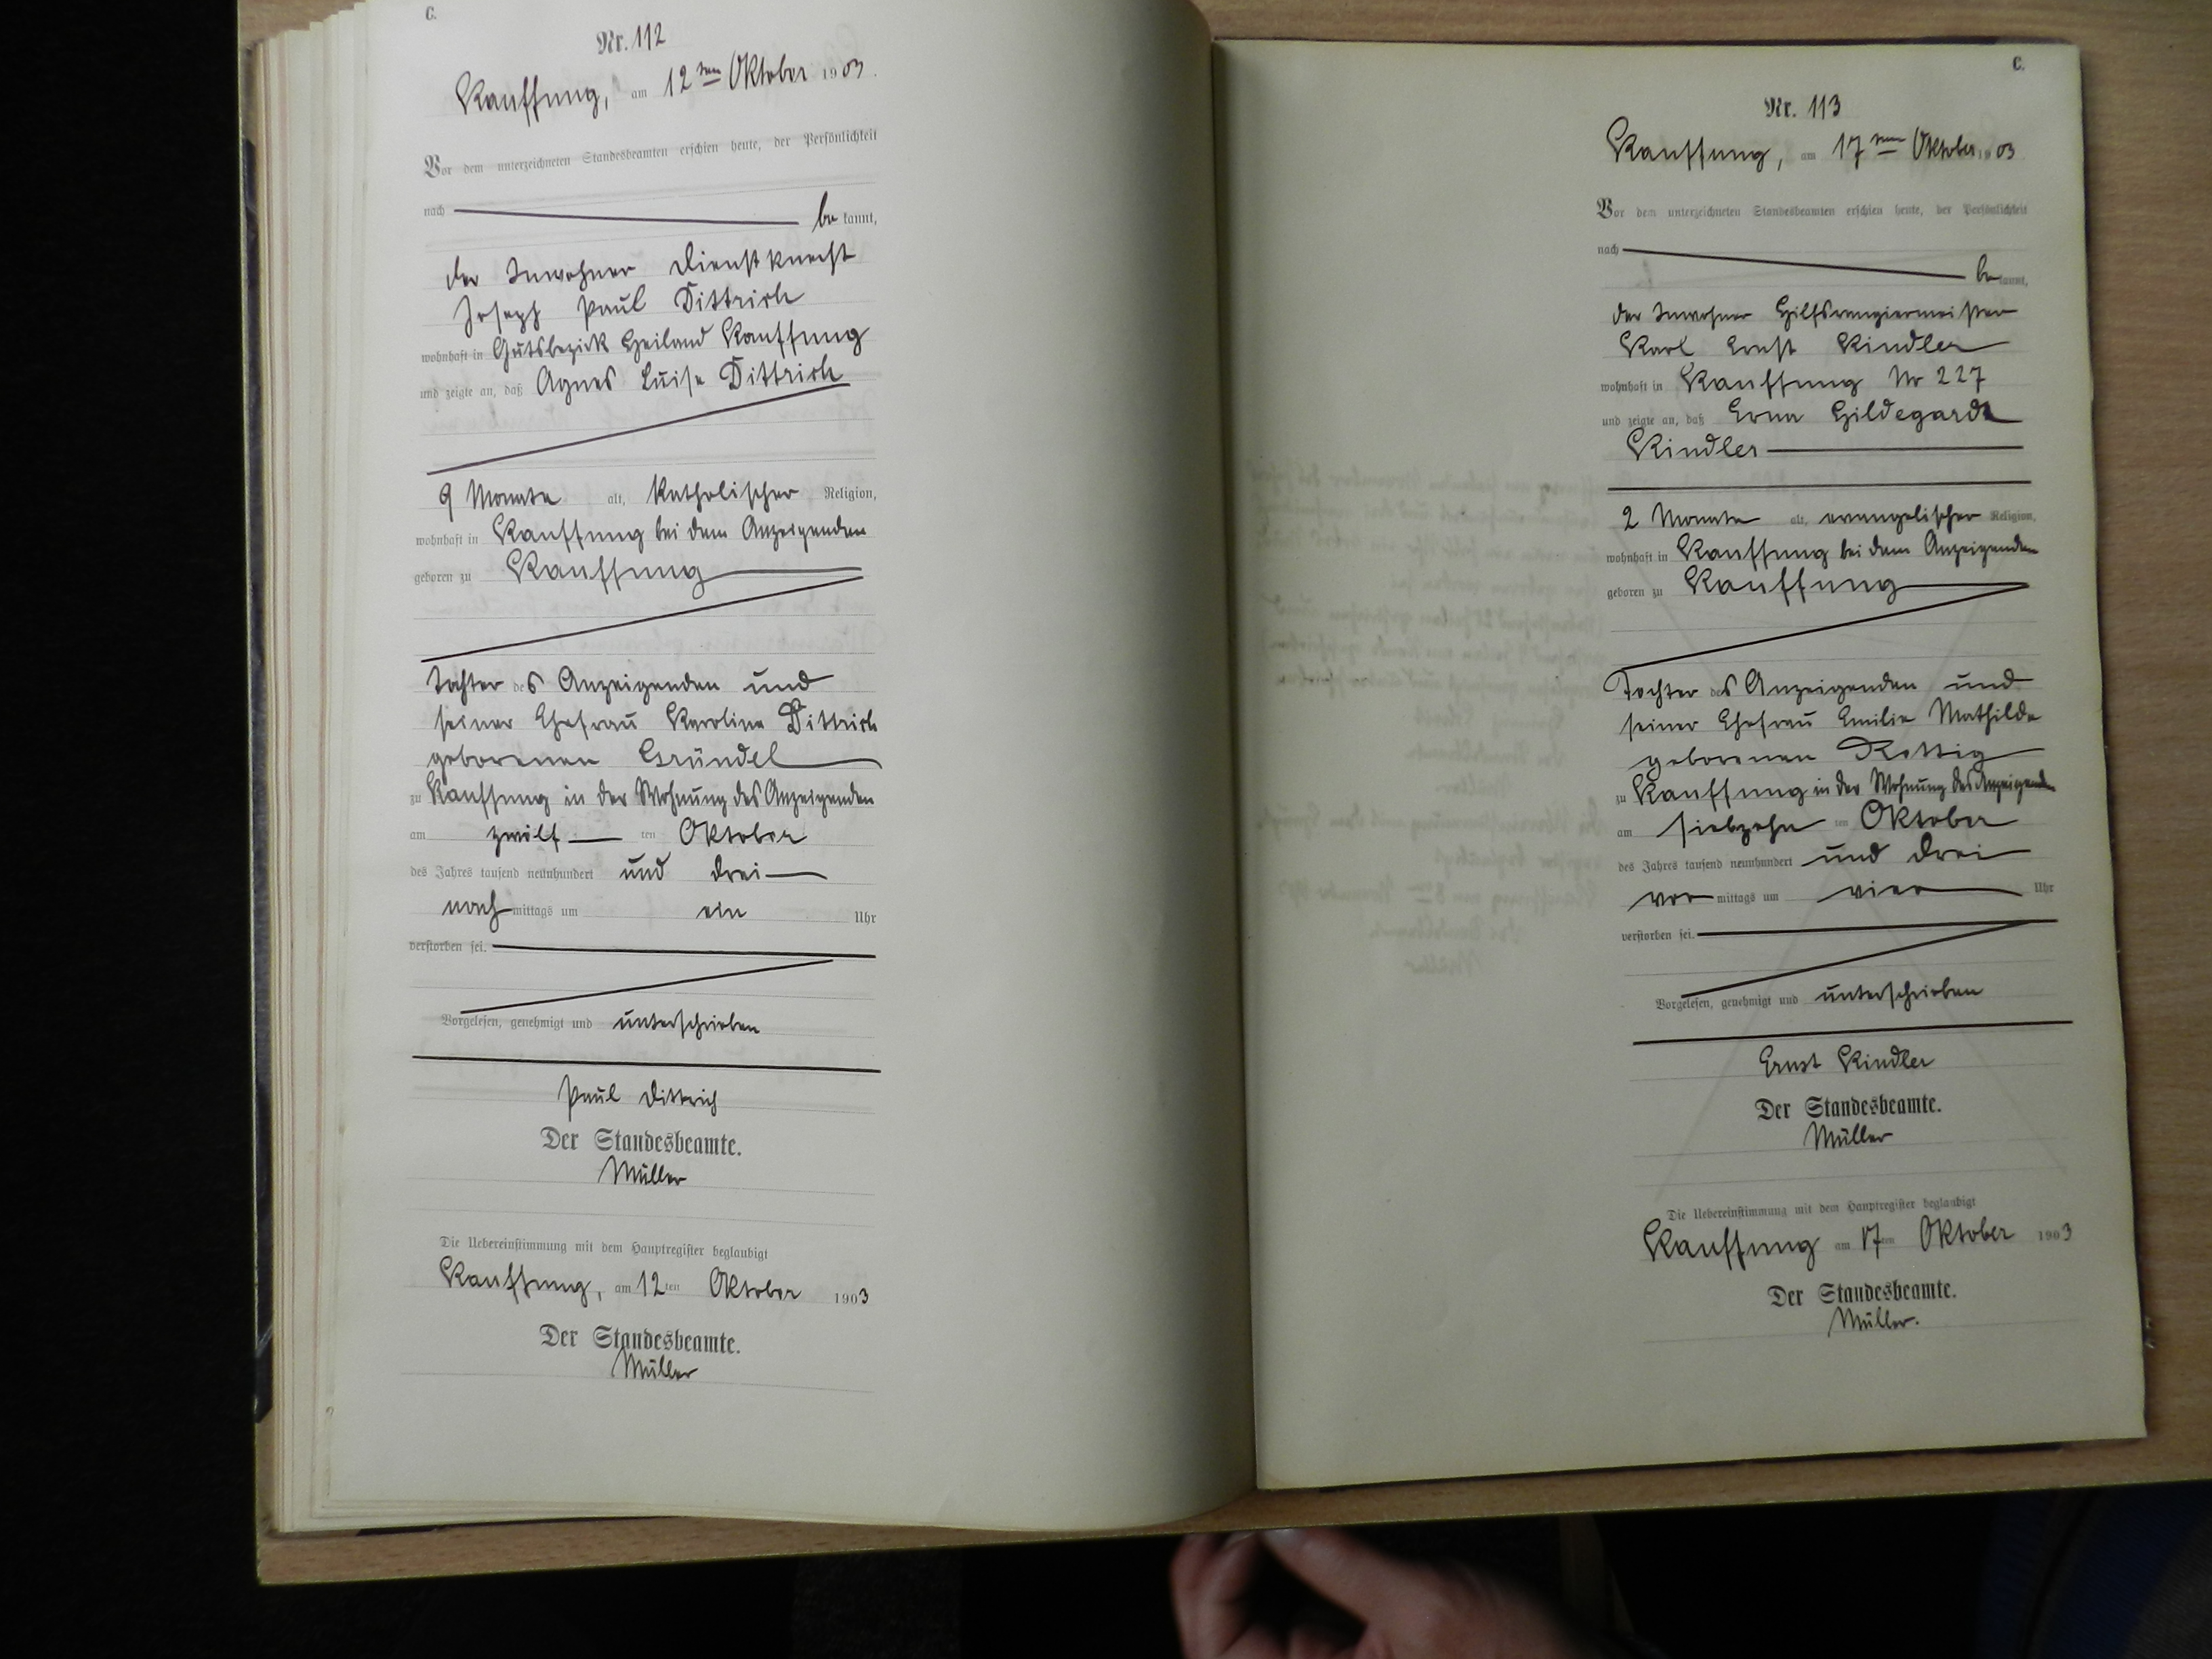 C.
Nr. 112
Kauffung, am 12ten Oktober 1903.
Vor dem unterzeichneten Standesbeamten erschien heute, der Persönlichkeit
nach be kannt,
der Inwohner Dienstknecht
Joseph Paul Dittrich
wohnhaft in Gutsbezirk Heiland Kauffung
und zeigte an, daß Agnes Luise Dittrich
9 Monate alt, katholischer Religion,
wohnhaft in Kauffung bei dem Anzeigenden
geboren zu Kauffung
Tochter des Anzeigenden und
seiner Ehefrau Karoline Dittrich
geborenen Gründel
zu Kauffung in der Wohnung des Anzeigenden
am zwölf ten Oktober
des Jahres tausend neunhundert und drei
nachmittags um ein Uhr
verstorben sei.
Vorgelesen, genehmigt und unterschrieben
Paul Dittrich
Der Standesbeamte.
Müller
Die Uebereinstimmung mit dem Hauptregister beglaubigt
Kauffung, am 12ten Oktober 1903
Der Standesbeamte.
Müller
C.
Nr. 113
Kauffung, am 17ten Oktober 1903
Vor dem unterzeichneten Standesbeamten erschien heute, der Persönlichkeit
nach be kannt,
der Inwohner Hilfsrangiermeister
Karl Ernst Kindler
wohnhaft in Kauffung Nr 227
und zeigte an, daß Erna Hildegard
Kindler
2 Monate alt, evangelischer Religion,
wohnhaft in Kauffung bei dem Anzeigenden
geboren zu Kauffung
Tochter des Anzeigenden und
seiner Ehefrau Emilie Mathilde
geborenen Rottig
zu Kauffung in der Wohnung des Anzeigenden
am siebzehn ten Oktober
des Jahres tausend neunhundert und drei
vormittags um vier Uhr
verstorben sei.
Vorgelesen, genehmigt und unterschrieben
Ernst Kindler
Der Standesbeamte.
Müller
Die Uebereinstimmung mit dem Hauptregister beglaubigt
Kauffung am 17ten Oktober 1903
Der Standesbeamte.
Müller.